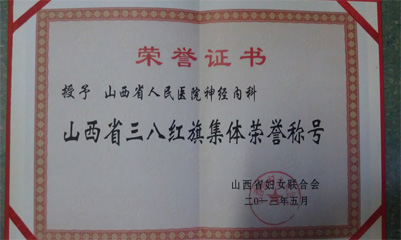 荣誉证书
授予 山西省人民医院神经内科
山西省三八红旗集体荣誉称号
山西省妇女联合会
二〇一三年五月